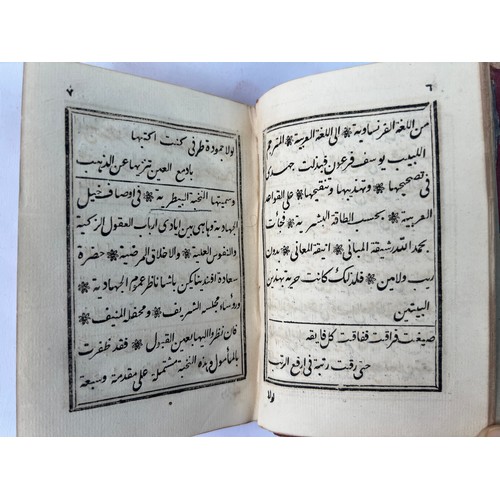 ٦
من اللغة الفرنساوية ❋ الى اللغة العربية ❋ المترجم
اللبيب يوسف فرعون فبذلت جهدى
فى تصحيحها ❋ وتهذيبها وتنقيحها ❋ على القواعد
العربية ❋ بحسب الطاقة البشرية ❋ فجأت
بحمد الله رشيقة المبانى ❋ انيقة المعانى ❋ بدون
ريب ولامين ❋ فلذلك كانت حرية بهذين
البيتين
صيغت فراقت ففاقت كل فايقه
حتى رقت رتبة فى ارفع الرتب
لولا
٧
لولا جمودة طرفى كنت اكتبها
بادمع العين تنزيها عن الذهب
وسميتها النخبة البيطرية ❋ فى اوصاف خيل
الجهادية وهاهى بين ايادى ارباب العقول الزكية
والنفوس العلية ❋ والاخلاق المرضية ❋ حضرة
سعادة افندينا يكن باشا ناظر عموم الجهادية ❋
ورؤساء مجلسه الشريف ❋ ومحفله المنيف ❋
فان نظروا اليها بعين القبول ❋ فقد ظفرت
بالمأمول ❋ وهذه النخبة مشتملة على مقدمة وسبعة